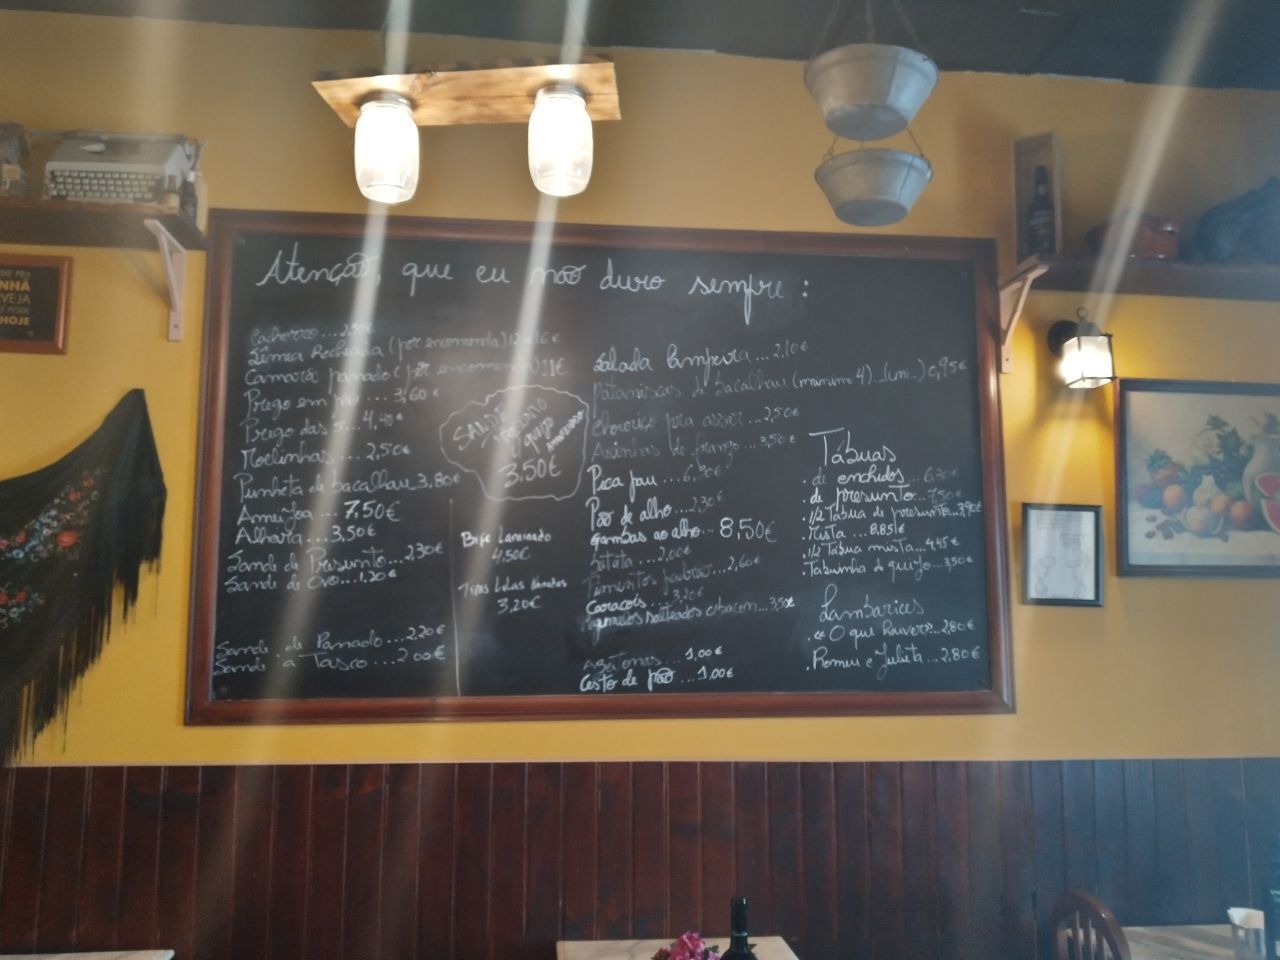 Atenção, que eu não duro sempre :
Cachorro ... 2,50€
Sêmea Recheada (por encomenda) 12 a 16€
Camarão panado (por encomenda) 11€
Prego em pão .... 3,60€
Prego das 5 ... 4,40€
Moelinhas ... 2,50€
Punheta de bacalhau 3,80€
Ameijoa ... 7.50€
Alheira ... 3,50€
Sande de Presunto ... 2,30€
Sande de Ovo ... 1,20€
Sande de Panado ... 2,20€
Sande à Tasco ... 2,00€
SANDE
PRESUNTO
queijo
AMANTEIGADO
3.50€
Bife Laminado
4,50€
Tiras Lulas Panadas
3,20€
Salada Campeira ... 2,10€
Pataniscas de bacalhau (mínimo 4) ... (uni..) 0,95€
Chouriço pra assar ... 2,50€
Asinhas de frango ... 3,50€
Pica pau ... 6,30€
Pão de alho ... 2,30€
Gambas ao alho ... 8,50€
Batata ... 2,00€
Pimentos padrão ... 2,60€
Caracois ... 3,20€
salteados c/bacon ... 3,50€
Azeitonas ... 1,00€
Cesto de pão ... 1,00€
Tábuas
. de enchidos ... 6,30€
. de presunto ... 7,50€
. 1/2 Tábua de presunto ... 3,90€
. Mista ... 8,85€
. 1/2 Tábua mista ... 4,45€
. Tabuinha de queijo ... 3,50€
Lambarices
. "O que houver" ... 2,80€
. Romeu e Julieta ... 2,80€
NHÃ
VEJA
HOJE